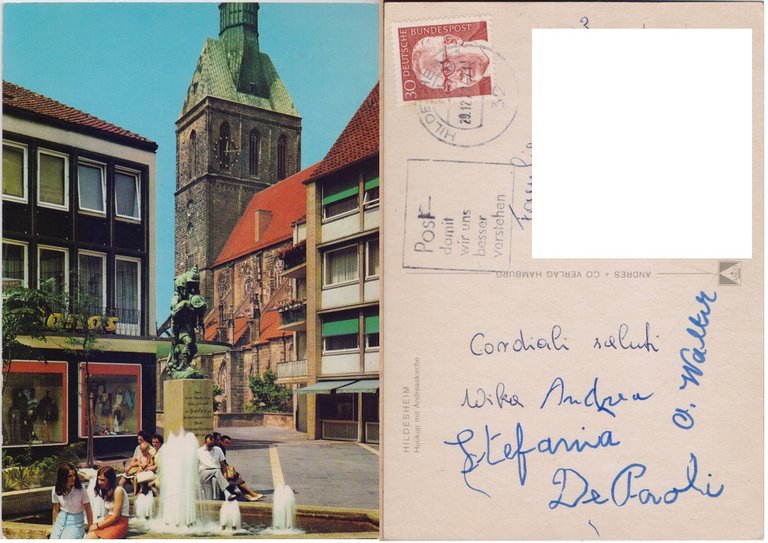 DEUTSCHE BUNDESPOST
30
HILDESHEIM
29.12.
32
Post
damit
wir uns
besser
verstehen
ANDRES + CO VERLAG HAMBURG
HILDESHEIM
Huckup mit Andreaskirche
Cordiali saluti
Wika Andrea
Stefania
De Paoli
O. Walter